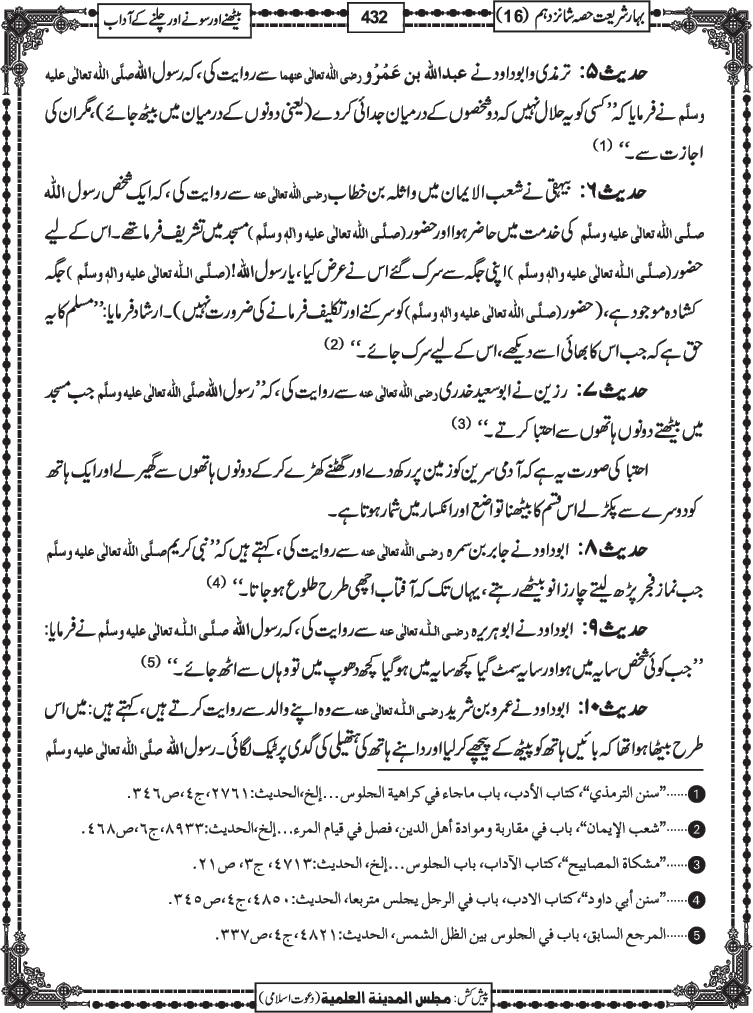 بہار شریعت حصہ شانزدہم (16)
432
بیٹھنے اور سونے اور چلنے کے آداب
حدیث ۵: ترمذی و ابوداود نے عبداللہ بن عَمْرُو رضی اللہ تعالٰی عنهما سے روایت کی، کہ رسول اللہ صلَّی اللہ تعالٰی علیه
وسلَّم نے فرمایا کہ ’’کسی کو یہ حلال نہیں کہ دو شخصوں کے درمیان جدائی کردے (یعنی دونوں کے درمیان میں بیٹھ جائے)، مگر ان کی
اجازت سے۔‘‘ (1)
حدیث ۶: بیہقی نے شعب الایمان میں واثلہ بن خطاب رضی اللہ تعالٰی عنه سے روایت کی، کہ ایک شخص رسول اللہ
صلَّی اللہ تعالٰی علیه وسلَّم کی خدمت میں حاضر ہوا اور حضور (صلَّی اللہ تعالٰی علیه واٰلهٖ وسلَّم) مسجد میں تشریف فرما تھے۔ اس کے لیے
حضور (صلَّی اللہ تعالٰی علیه واٰلهٖ وسلَّم) اپنی جگہ سے سرک گئے اس نے عرض کیا، یارسول اللہ! (صلَّی اللہ تعالٰی علیه واٰلهٖ وسلَّم) جگہ
کشادہ موجود ہے، (حضور (صلَّی اللہ تعالٰی علیه واٰلهٖ وسلَّم) کو سرکنے اور تکلیف فرمانے کی ضرورت نہیں)۔ ارشاد فرمایا: ’’مسلم کا یہ
حق ہے کہ جب اس کا بھائی اسے دیکھے، اس کے لیے سرک جائے۔‘‘ (2)
حدیث ۷: رزین نے ابوسعید خدری رضی اللہ تعالٰی عنه سے روایت کی، کہ ’’رسول اللہ صلَّی اللہ تعالٰی علیه وسلَّم جب مسجد
میں بیٹھتے دونوں ہاتھوں سے احتبا کرتے۔‘‘ (3)
احتبا کی صورت یہ ہے کہ آدمی سرین کو زمین پر رکھ دے اور گھٹنے کھڑے کرکے دونوں ہاتھوں سے گھیر لے اور ایک ہاتھ
کو دوسرے سے پکڑ لے اس قسم کا بیٹھنا تواضع اور انکسار میں شمار ہوتا ہے۔
حدیث ۸: ابوداود نے جابر بن سمرہ رضی اللہ تعالٰی عنه سے روایت کی، کہتے ہیں کہ ’’نبی کریم صلَّی اللہ تعالٰی علیه وسلَّم
جب نماز فجر پڑھ لیتے چارزانو بیٹھے رہتے، یہاں تک کہ آفتاب اچھی طرح طلوع ہوجاتا۔‘‘ (4)
حدیث ۹: ابوداود نے ابوہریرہ رضی اللہ تعالٰی عنه سے روایت کی، کہ رسول اللہ صلَّی اللہ تعالٰی علیه وسلَّم نے فرمایا:
’’جب کوئی شخص سایہ میں ہو اور سایہ سمٹ گیا کچھ سایہ میں ہوگیا کچھ دھوپ میں تو وہاں سے اٹھ جائے۔‘‘ (5)
حدیث ۱۰: ابوداود نے عمرو بن شرید رضی اللہ تعالٰی عنه سے وہ اپنے والد سے روایت کرتے ہیں، کہتے ہیں: میں اس
طرح بیٹھا ہوا تھا کہ بائیں ہاتھ کو پیٹھ کے پیچھے کرلیا اور داہنے ہاتھ کی ہتھیلی کی گدی پر ٹیک لگائی۔ رسول اللہ صلَّی اللہ تعالٰی علیه وسلَّم
1 ......”سنن الترمذي“، کتاب الأدب، باب ماجاء في کراهیة الجلوس...إلخ،الحدیث:٢٧٦١،ج٤،ص٣٤٦.
2 ......”شعب الإیمان“، باب في مقاربة وموادة أهل الدین، فصل في قیام المرء...إلخ،الحدیث:٨٩٣٣،ج٦،ص٤٦٨.
3 ......”مشکاة المصابیح“، کتاب الآداب، باب الجلوس...إلخ، الحدیث:٤٧١٣، ج٣، ص٢١.
4 ......”سنن أبي داود“،کتاب الادب، باب في الرجل یجلس متربعا، الحدیث:٤٨٥٠،ج٤،ص٣٤٥.
5 ......المرجع السابق، باب في الجلوس بین الظل الشمس، الحدیث:٤٨٢١،ج٤،ص٣٣٧.
پیش کش: مجلس المدینة العلمیة (دعوت اسلامی)